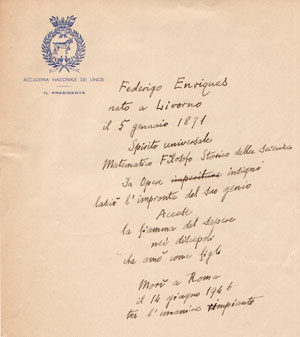 ACCADEMIA NAZIONALE DEI LINCEI
IL PRESIDENTE
Federigo Enriques
nato a Livorno
il 5 gennaio 1871
Spirito universale
Matematico Filosofo Storico della Scienza
In Opere imperiture insigni
lasciò l'impronta del suo genio
Accese
la fiamma del sapere
nei discepoli
che amò come figli
Morì a Roma
il 14 giugno 1946
tra l'unanime rimpianto